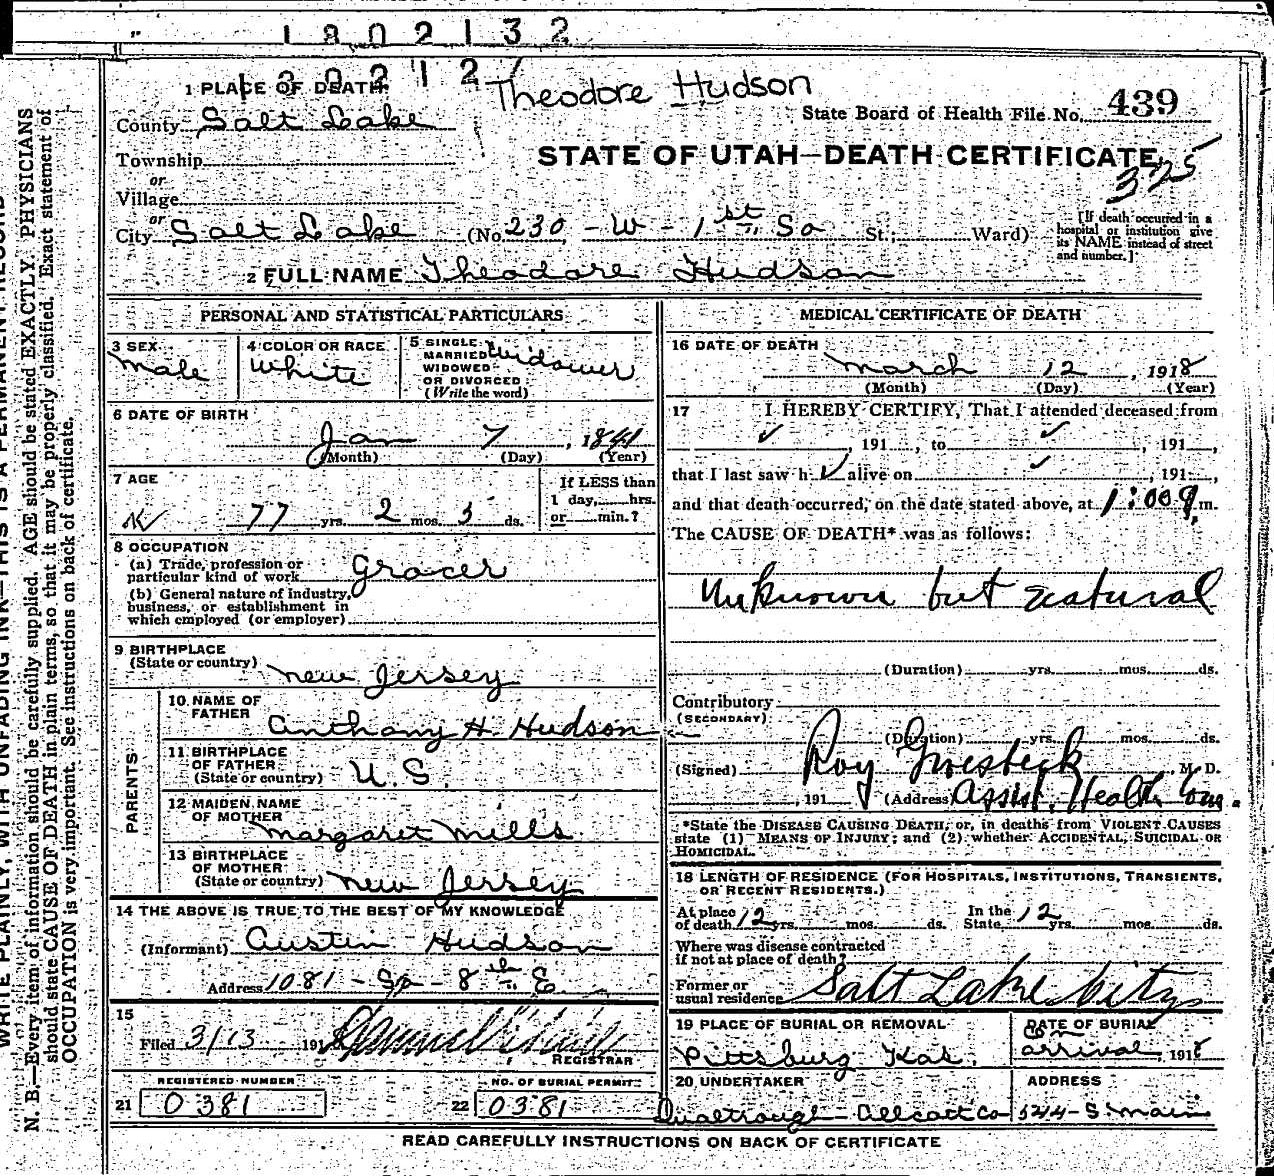 1802132
130212
Theodore Hudson
1 PLACE OF DEATH
County Salt Lake
State Board of Health File No. 439
Township
or
STATE OF UTAH—DEATH CERTIFICATE
325
Village
or
City Salt Lake (No. 230 - W - 1st So St.; Ward)
[If death occurred in a hospital or institution give its NAME instead of street and number.]
2 FULL NAME Theodore Hudson
PERSONAL AND STATISTICAL PARTICULARS
3 SEX Male
4 COLOR OR RACE White
5 SINGLE, MARRIED, WIDOWED OR DIVORCED (Write the word) Widower
6 DATE OF BIRTH
Jan 7, 1841
(Month) (Day) (Year)
7 AGE
77 yrs. 2 mos. 5 ds.
If LESS than 1 day, hrs. or min.?
8 OCCUPATION
(a) Trade, profession or particular kind of work Grocer
(b) General nature of industry, business, or establishment in which employed (or employer)
9 BIRTHPLACE
(State or country) New Jersey
PARENTS
10 NAME OF FATHER Anthony H. Hudson
11 BIRTHPLACE OF FATHER (State or country) U.S.
12 MAIDEN NAME OF MOTHER Margaret Mills
13 BIRTHPLACE OF MOTHER (State or country) New Jersey
14 THE ABOVE IS TRUE TO THE BEST OF MY KNOWLEDGE
(Informant) Austin Hudson
Address 1081 - So - 8th E.
15
Filed 3/13 191
REGISTRAR
REGISTERED NUMBER
21 0381
NO. OF BURIAL PERMIT
22 0381
MEDICAL CERTIFICATE OF DEATH
16 DATE OF DEATH
March 12, 1918
(Month) (Day) (Year)
17 I HEREBY CERTIFY, That I attended deceased from
✓, 191 , to ✓, 191 ,
that I last saw h ✓ alive on ✓, 191 ,
and that death occurred, on the date stated above, at 1:00 m.
The CAUSE OF DEATH* was as follows:
Unknown but natural
(Duration) yrs. mos. ds.
Contributory
(SECONDARY)
(Duration) yrs. mos. ds.
(Signed) Roy M. D.
, 191 (Address) Assist. Health Com.
*State the DISEASE CAUSING DEATH, or, in deaths from VIOLENT CAUSES
state (1) MEANS OF INJURY; and (2) whether ACCIDENTAL, SUICIDAL OR
HOMICIDAL.
18 LENGTH OF RESIDENCE (FOR HOSPITALS, INSTITUTIONS, TRANSIENTS, OR RECENT RESIDENTS.)
At place of death 12 yrs. mos. ds. In the State 12 yrs. mos. ds.
Where was disease contracted if not at place of death?
Former or usual residence Salt Lake City
19 PLACE OF BURIAL OR REMOVAL
Pittsburg Kas.
DATE OF BURIAL
on arrival, 1918
20 UNDERTAKER
Qualtrough - Allcott Co
ADDRESS
544 - S Main
READ CAREFULLY INSTRUCTIONS ON BACK OF CERTIFICATE
WRITE PLAINLY, WITH UNFADING INK—THIS IS A PERMANENT RECORD
N. B.—Every item of information should be carefully supplied. AGE should be stated EXACTLY. PHYSICIANS
should state CAUSE OF DEATH in plain terms, so that it may be properly classified. Exact statement of
OCCUPATION is very important. See instructions on back of certificate.